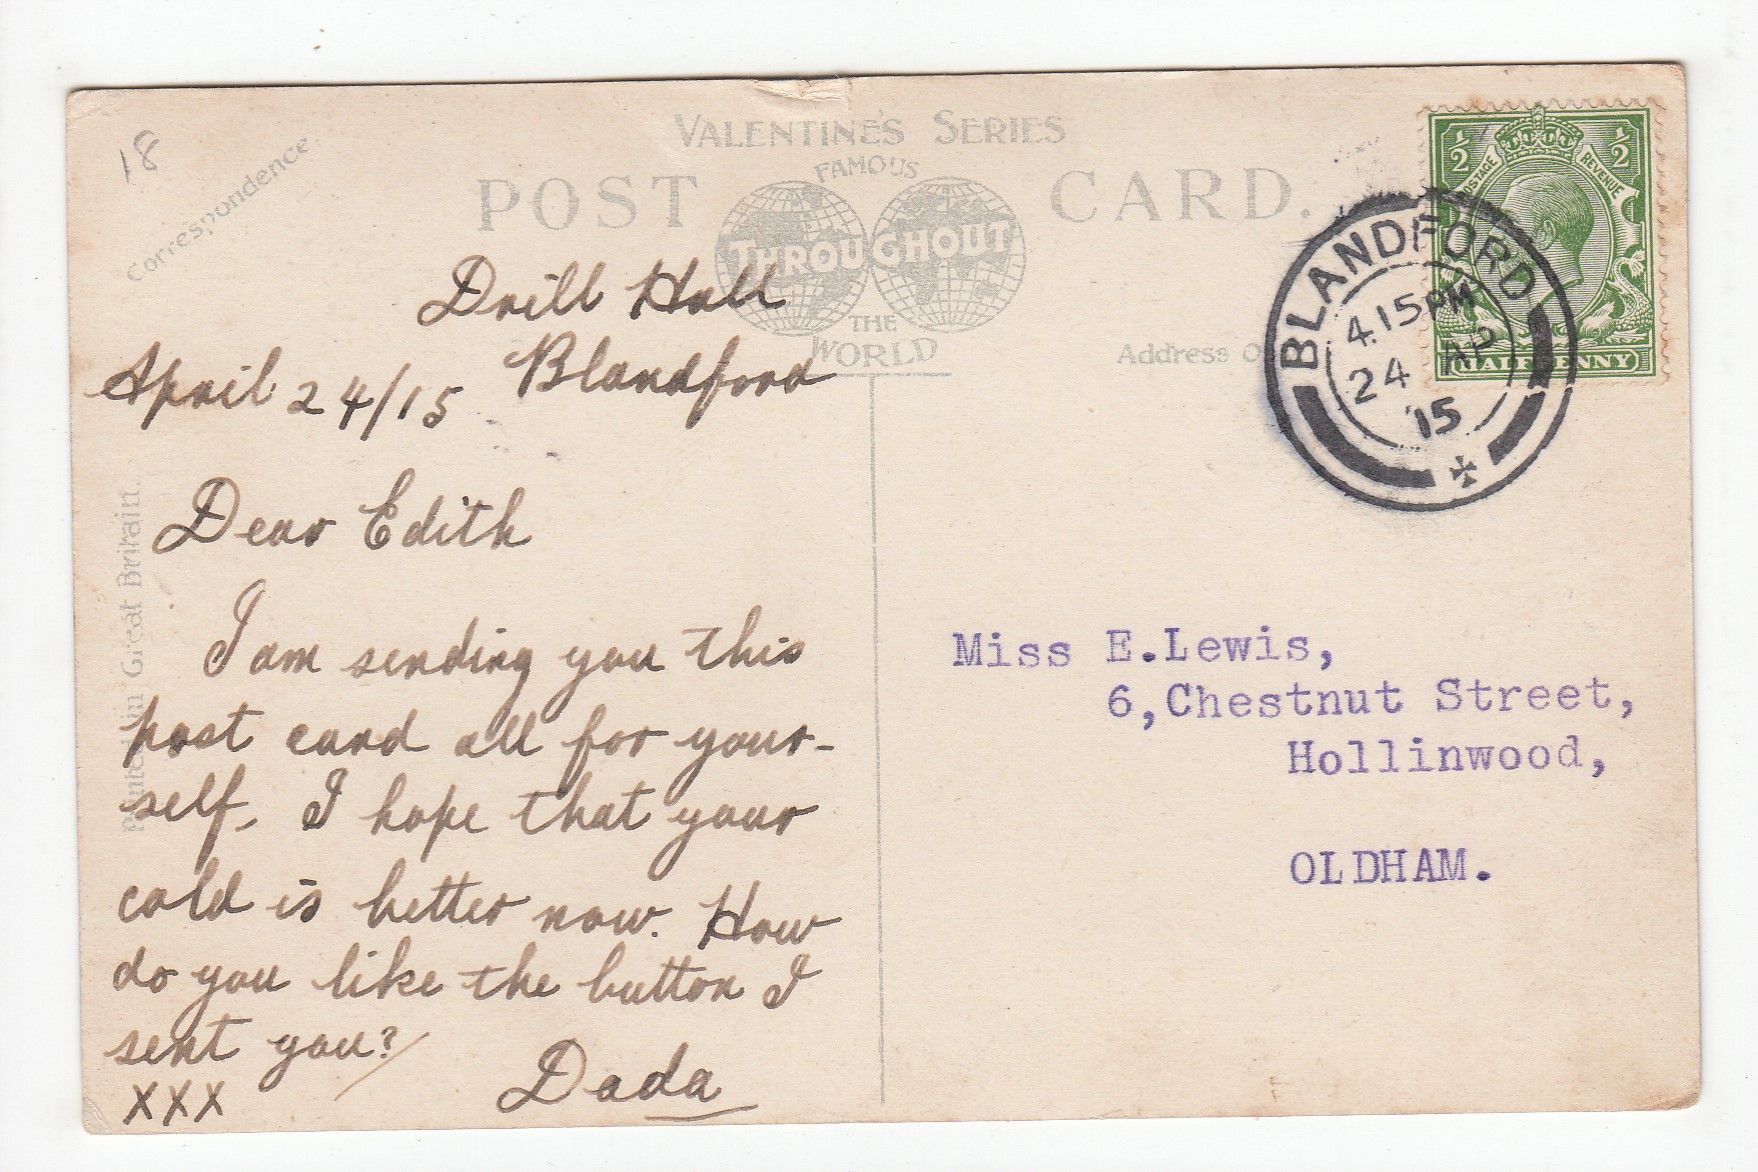 18
Correspondence
VALENTINE'S SERIES
FAMOUS
POST CARD.
THROUGHOUT
THE
WORLD
Drill Hall
Blandford
April 24/15
Dear Edith
I am sending you this
post card all for your-
self. I hope that your
cold is better now. How
do you like the button I
sent you?
XXX Dada
Printed in Great Britain.
Address
½ ½
POSTAGE REVENUE
HALFPENNY
BLANDFORD
4.15PM
24 AP
15
Miss E.Lewis,
6,Chestnut Street,
Hollinwood,
OLDHAM.